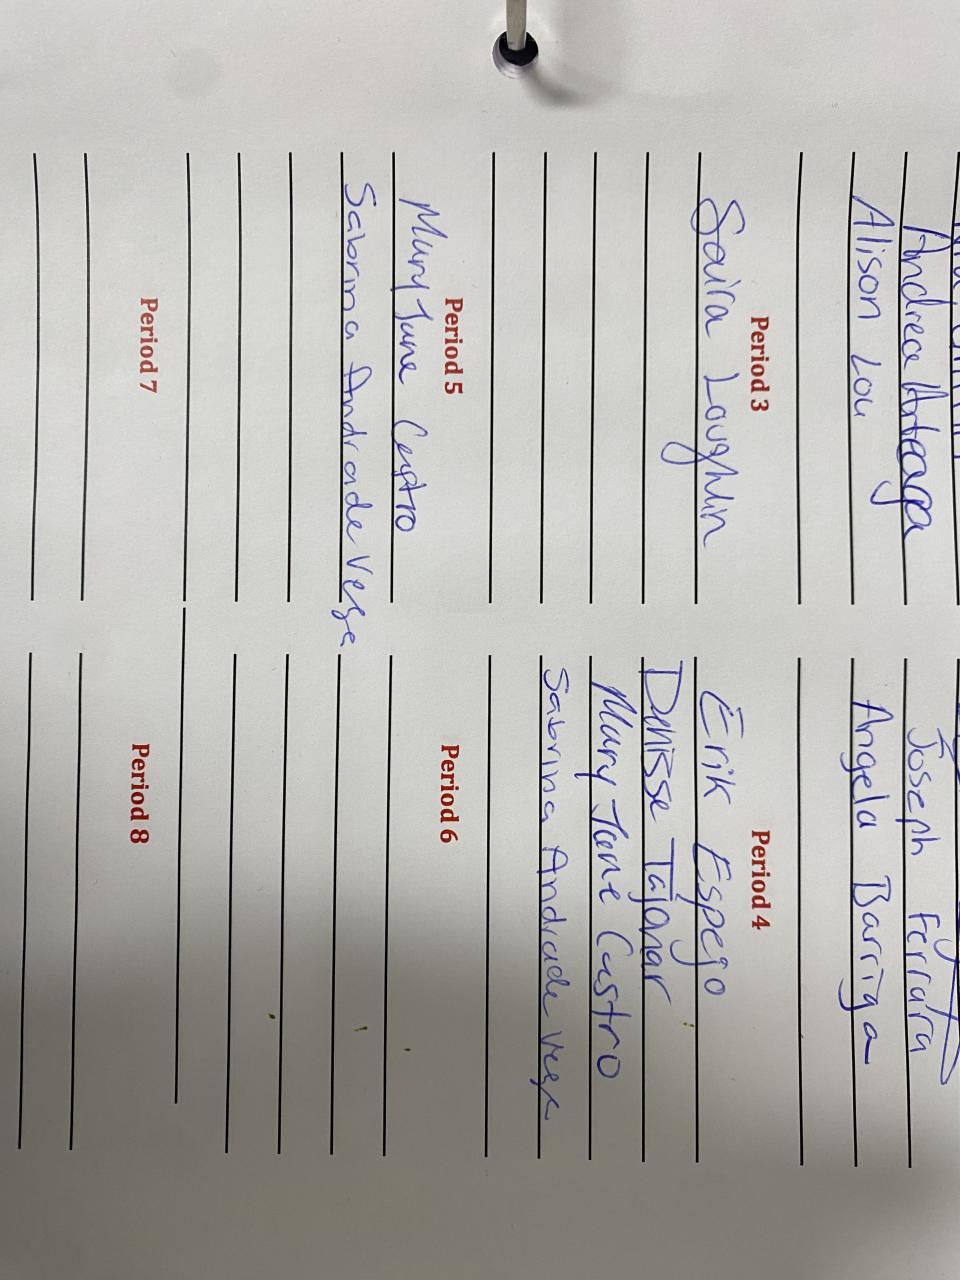 Andrea Arteaga
Joseph Ferrara
Alison Lou
Angela Barriga
Period 3
Period 4
Saira Loughlin
Erik Espejo
Denisse Tajonar
Mary Jane Castro
Sabrina Andrade Vega
Period 5
Period 6
Mary Jane Castro
Sabrina Andrade Vega
Period 7
Period 8